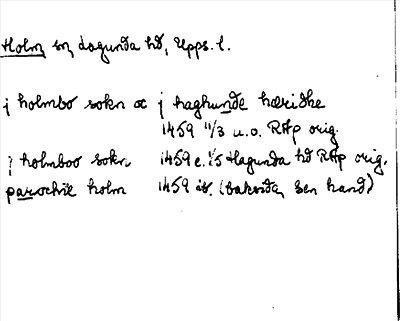 Holm sn, Lagunda hd, Upps. l.
j holmbo sokn oc j haghunde hæridhe
1459 11/3 u.o. RAp orig.
j holmboo sokn 1459 e. 1/5 Hagunda hd RAp orig.
parochie holm 1459 ib. (baksida, sen hand)